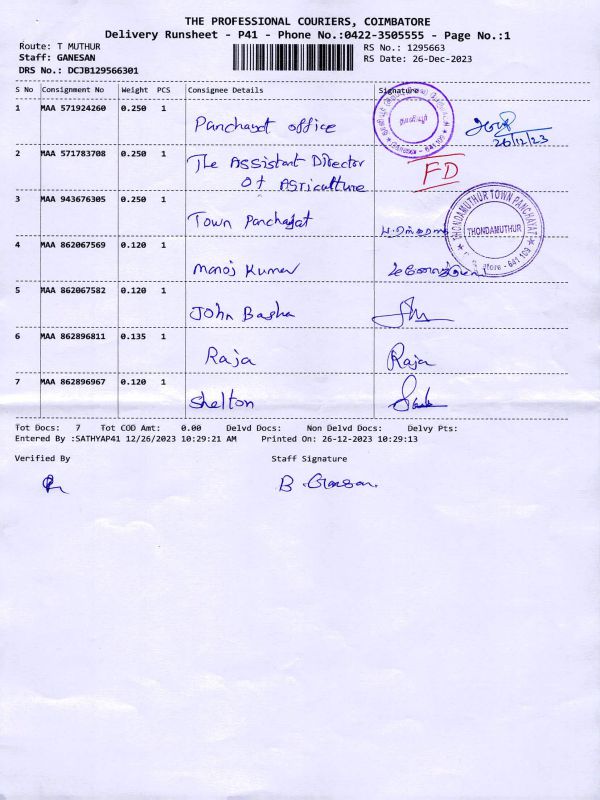 THE PROFESSIONAL COURIERS, COIMBATORE
Delivery Runsheet - P41 - Phone No.:0422-3505555 - Page No.:1
Route: T MUTHUR
RS No.: 1295663
Staff: GANESAN
RS Date: 26-Dec-2023
DRS No.: DCJB129566301
S No Consignment No Weight PCS Consignee Details Signature
1 MAA 571924260 0.250 1 Panchayat office
தாளியூர்
26/12/23
2 MAA 571783708 0.250 1 The Assistant Director
Of Agriculture
FD
3 MAA 943676305 0.250 1 Town Panchayat
THONDAMUTHUR TOWN PANCHAYAT
THONDAMUTHUR
641 109
4 MAA 862067569 0.120 1 Manoj Kumar
5 MAA 862067582 0.120 1 John Basha
6 MAA 862896811 0.135 1 Raja Raja
7 MAA 862896967 0.120 1 Shelton
Tot Docs: 7 Tot COD Amt: 0.00 Delvd Docs: Non Delvd Docs: Delvy Pts:
Entered By :SATHYAP41 12/26/2023 10:29:21 AM Printed On: 26-12-2023 10:29:13
Verified By Staff Signature
B. Ganesan.